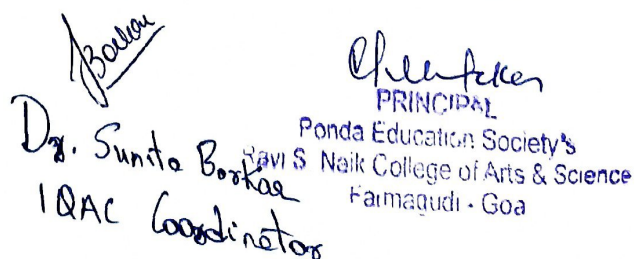 Borkar
Dr. Sunita Borkar
IQAC Coordinator
PRINCIPAL
Ponda Education Society's
Ravi S Naik College of Arts & Science
Farmagudi - Goa